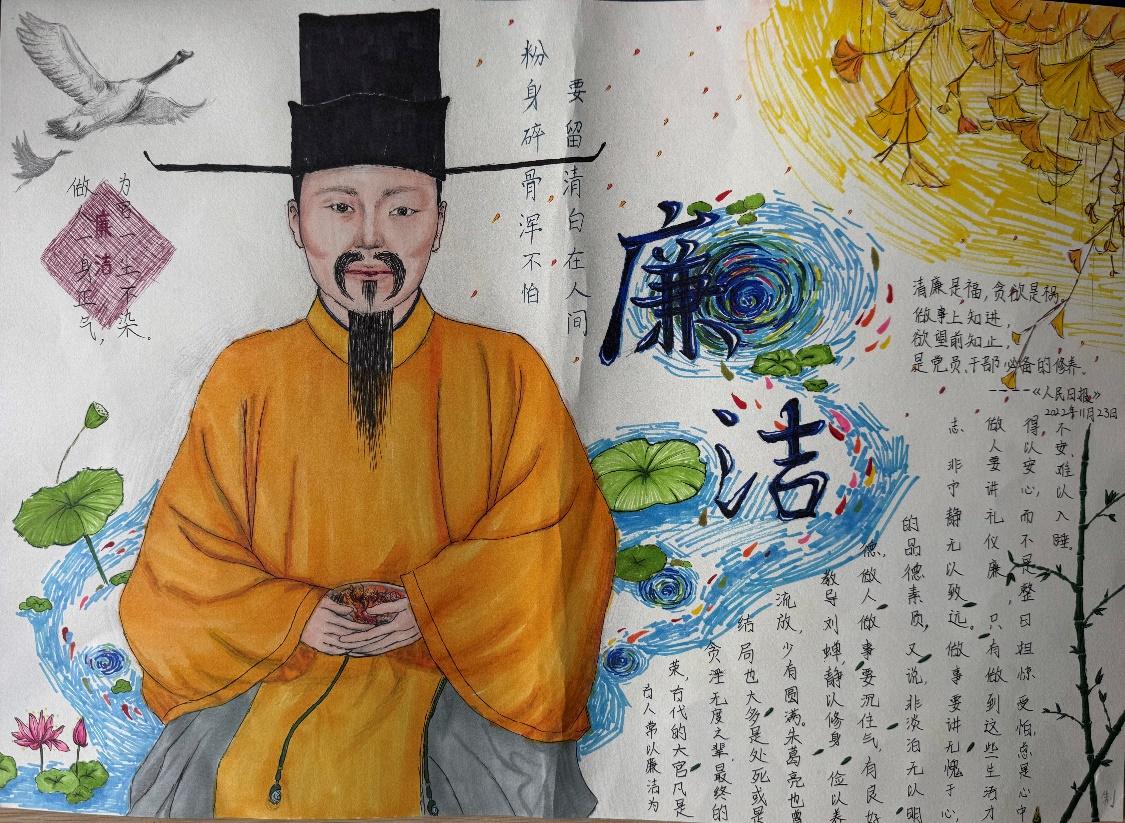 做一身正气，
为官一生不染。
廉洁
粉身碎骨浑不怕
要留清白在人间
廉
洁
清廉是福，贪欲是祸，
做事上知进，
欲望前知止，
是党员、干部必备的修养。
----《人民日报》
2022年11月23日
古人常以廉洁为
荣，古代的大官凡是
贪淫无度之辈，最终的
结局也大多是处死或是
流放，少有圆满。朱葛亮也曾
教导刘蝉，静以修身 俭以养
德，做人做事要沉住气，有良好
的品德素质，又说，非淡泊无以明
志 非宁静无以致远。做事要讲无愧于心，
做人要讲礼仪廉 只有做到这些生活才
得以安心，而不是整日担惊受怕，总是心中
不安、难以入睡。
制